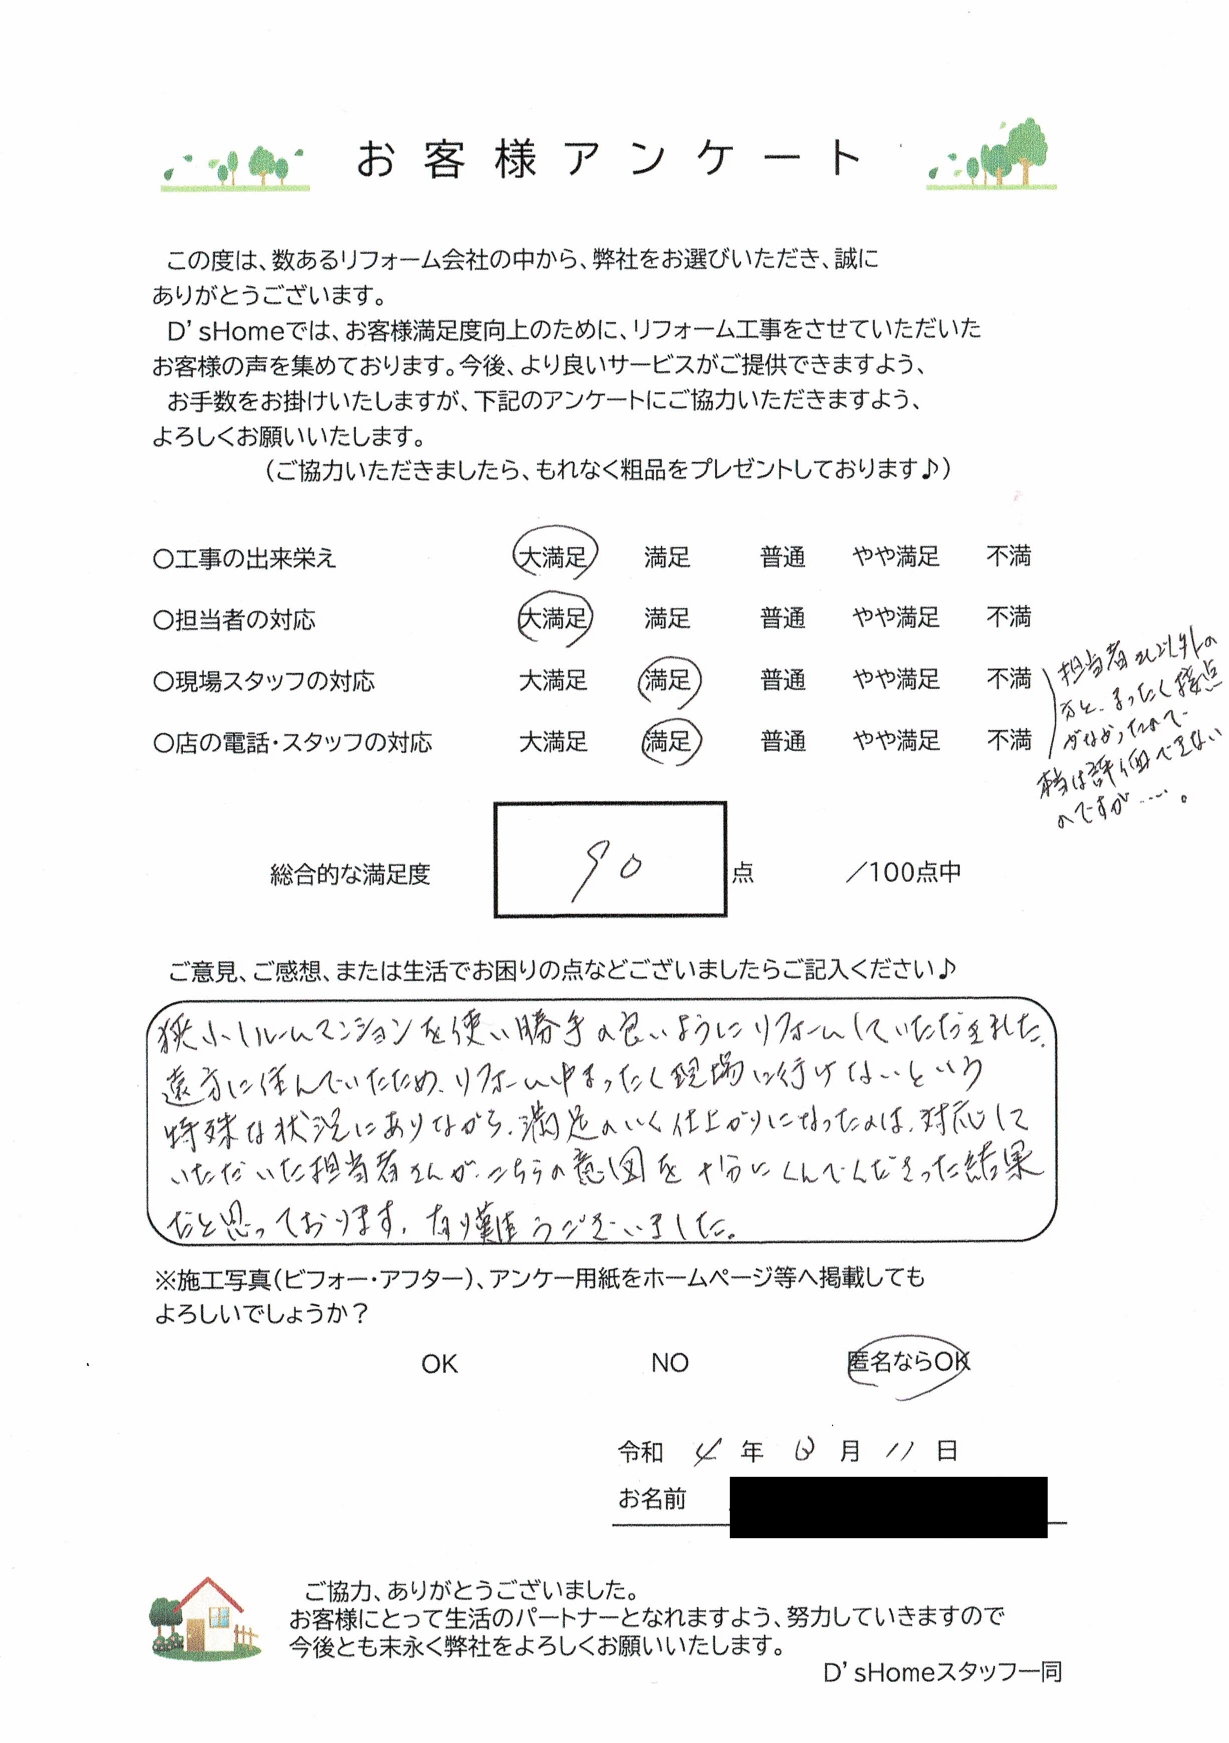 お客様アンケート
この度は、数あるリフォーム会社の中から、弊社をお選びいただき、誠に
ありがとうございます。
D'sHomeでは、お客様満足度向上のために、リフォーム工事をさせていただいた
お客様の声を集めております。今後、より良いサービスがご提供できますよう、
お手数をお掛けいたしますが、下記のアンケートにご協力いただきますよう、
よろしくお願いいたします。
（ご協力いただきましたら、もれなく粗品をプレゼントしております♪）
○工事の出来栄え 大満足 満足 普通 やや満足 不満
○担当者の対応 大満足 満足 普通 やや満足 不満
○現場スタッフの対応 大満足 満足 普通 やや満足 不満
○店の電話・スタッフの対応 大満足 満足 普通 やや満足 不満
担当者さん以外の
方と、まったく接点
がなかったので
本当は評価できない
のですが……。
総合的な満足度 90 点 ／100点中
ご意見、ご感想、または生活でお困りの点などございましたらご記入ください♪
狭小1ルームマンションを使い勝手の良いようにリフォームしていただきました。
遠方に住んでいたため、リフォーム中まったく現場に行けないという
特殊な状況にありながら、満足のいく仕上がりになったのは、対応して
いただいた担当者さんが、こちらの意図を十分にくんでくださった結果
だと思っております。有り難うございました。
※施工写真（ビフォー・アフター）、アンケー用紙をホームページ等へ掲載しても
よろしいでしょうか？
OK NO 匿名ならOK
令和 4 年 月 11 日
お名前
ご協力、ありがとうございました。
お客様にとって生活のパートナーとなれますよう、努力していきますので
今後とも末永く弊社をよろしくお願いいたします。
D'sHomeスタッフ一同